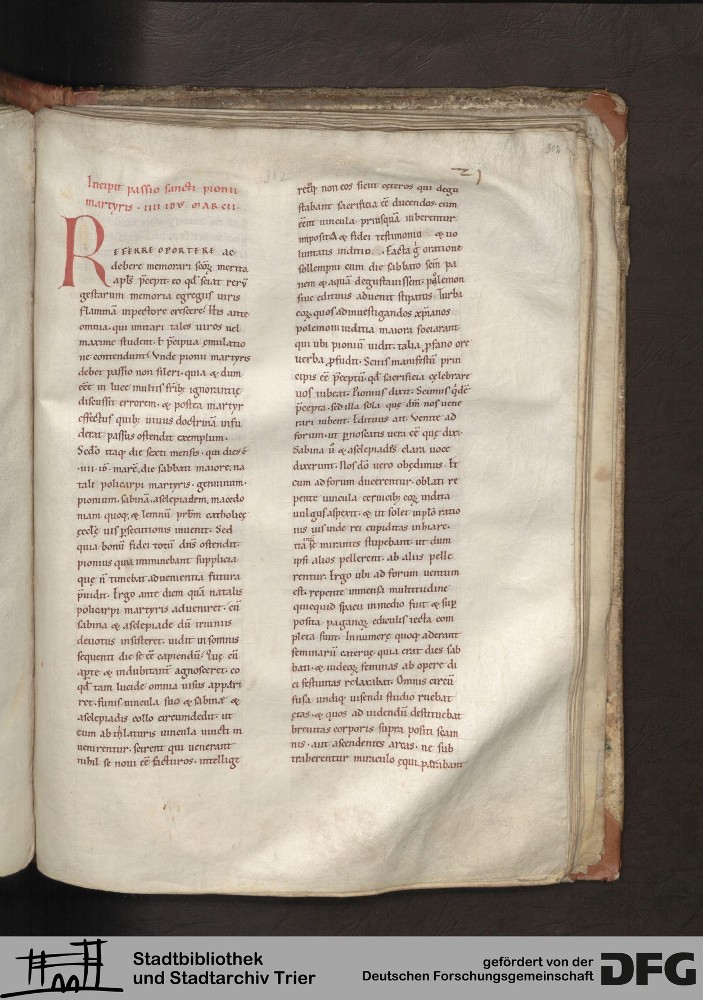 302
21
302
Incipit passio sancti pionii
martyris · IIII IDVS MARCII ·
REFERRE OPORTERE ac
debere memorari scōꝝ merita
apl's p̄cepit· eo qd' sciat rerū
gestarum memoria egregiis uiris
flammā in pectore crescere· His ante
omnia· qui imitari tales uiros uel
maxime student· t̄ p̄cipua emulatio
ne contendunt· Vnde pionii martyris
debet passio non sileri· quia & dum
eēt in luce multis frīb; ignorantię
discussit errorem· & postea martyr
effectus quib; uiuus doctrinā infu
derat passus ostendit exemplum·
Scd'o itaq; die sexti mensis· qui dies ē
·IIII· id'· marc̄· die sabbati maiore· na
tali policarpi martyris· genuinum·
pionium· sabinā· asclepiadem· macedo
niam quoq; & lemnū prb̄m catholicę
ęcclę uis p̄secutionis inuenit· Sed
quia bonū fidei totū dn̄s ostendit·
pionius quia imminebant supplicia
quę ñ timebat aduenientia futura
p̄uidit· Ergo ante diem quā natalis
policarpi martyris adueniret· cū
sabina & asclepiade dū ieiuniis
deuotus insisteret· uidit in somnis
sequenti die se eē capiendū· Quę cū
apte & indubitant̄ agnosceret· eo
qd' tam lucide omnia uisus appari
ret· funis uincula suo & sabinę &
asclepiadis collo circumdedit· ut
cum ab ihlaturis uincula uincti in
uenirentur· scirent qui uenerant
nihil se noui eē facturos· intellige
retq; non eos sicut cęteros qui degu
stabant sacrificia eē ducendos· cum
eēnt uincula priusquā iuberentur
imposita & fidei testimonio & uo
luntatis inditio· Facta g̊ oratione
sollempni cum die sabbato scm̄ pa
nem & aquā degustauissent· polemon
siue edituus aduenit stipatus turba
eoꝝ quos ad inuestigandos xp̄ianos
polemoni inditia maiora sociarant
qui ubi pionium uidit· talia ꝓfano ore
uerba ꝓfudit· Scitis manifestū prin
cipis eē p̄ceptū· qd' sacrificia cęlebrare
uos iubeat· Pionius dixit· Scimus qd'ē
p̄cepta· sed illa sola· quę dm̄ nos uene
rari iubent· Edituus ait· Venite ad
forum· ut p̄noscatis uera eē quę dixi·
Sabina u̅ & asclepiades clara uoce
dixerunt· Nos dō uero obędimus· Et
cum ad forum ducerentur· oblati re
pente uincula ceruicib; eoꝝ indita
uulgus aspexit· & ut solet inplo ratio
nis uisunde rei cupiditas inhiare·
ita se mirantes stupebant· ut dum
ipsi alios pellerent· ab aliis pelle
rentur· Ergo ubi ad forum uentum
est· repente inmensa multitudine
quicquid spacii in medio fuit & sup̄
posita paganoꝝ ediculis tecta com
pleta sunt· Innumerę quoq; aderant
feminarū cateruę· quia erat dies sab
bati· & iudeoꝝ feminas ab opere di
ei festiuitas relaxabat· Omnis circū
fusa undiq; uisendi studio ruebat
ętas· & quos ad uidendū destituebat
breuitas corporis supra positi scam
nis· aut ascendentes arcas· ne sub
traherentur miraculo ęquiparabant
Stadtbibliothek
und Stadtarchiv Trier
gefördert von der
Deutschen Forschungsgemeinschaft
DFG